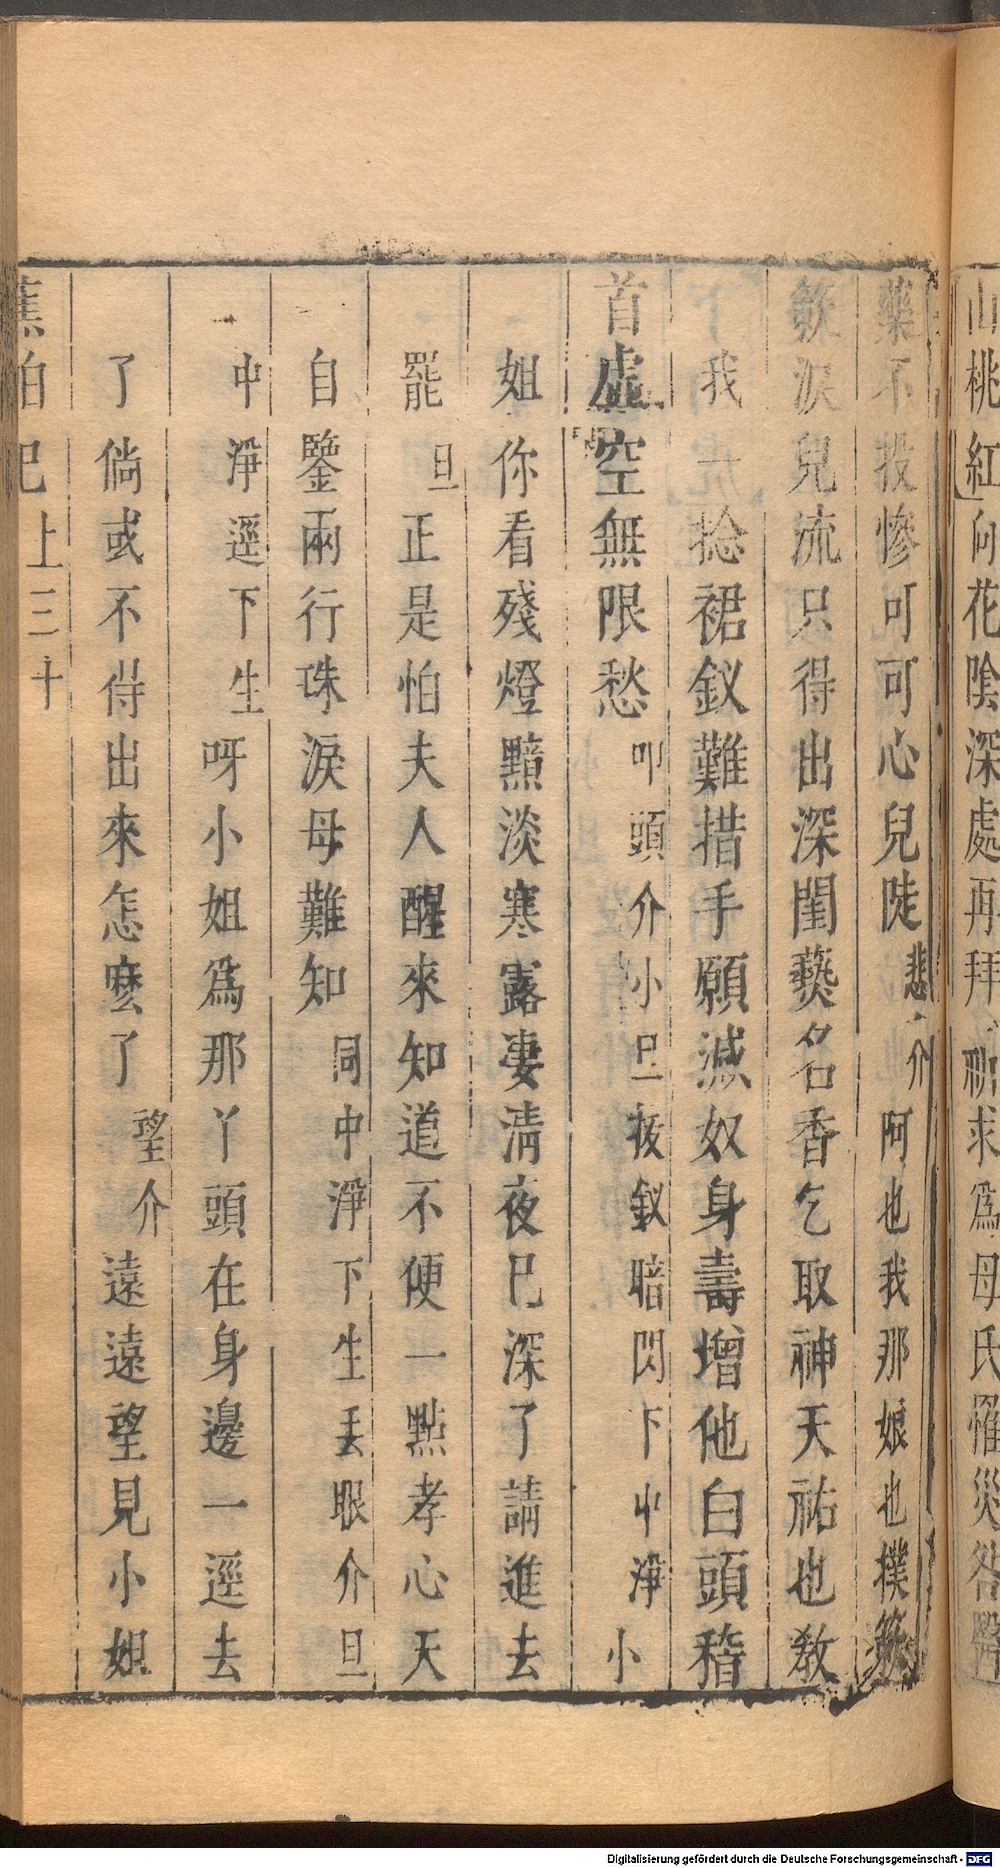 山桃紅向花陰深處再拜祈求爲母氏罹災咎醫
藥不投慘可可心兒陡悲介阿也我那娘也撲簌
簌淚兒流只得出深閨爇名香乞取神天祐也教
我一捻裙釵難措手願減奴身壽增他白頭稽
首虛空無限愁叩頭介小旦拔釵暗閃下中淨小
姐你看殘燈黯淡寒露淒清夜已深了請進去
罷旦正是怕夫人醒來知道不便一點孝心天
自鑒兩行珠淚母難知同中淨下生丟眼介旦
中淨逕下生呀小姐爲那丫頭在身邊一逕去
了倘或不得出來怎麼了望介遠遠望見小姐
蕉帕記上三十
Digitalisierung gefördert durch die Deutsche Forschungsgemeinschaft - DFG